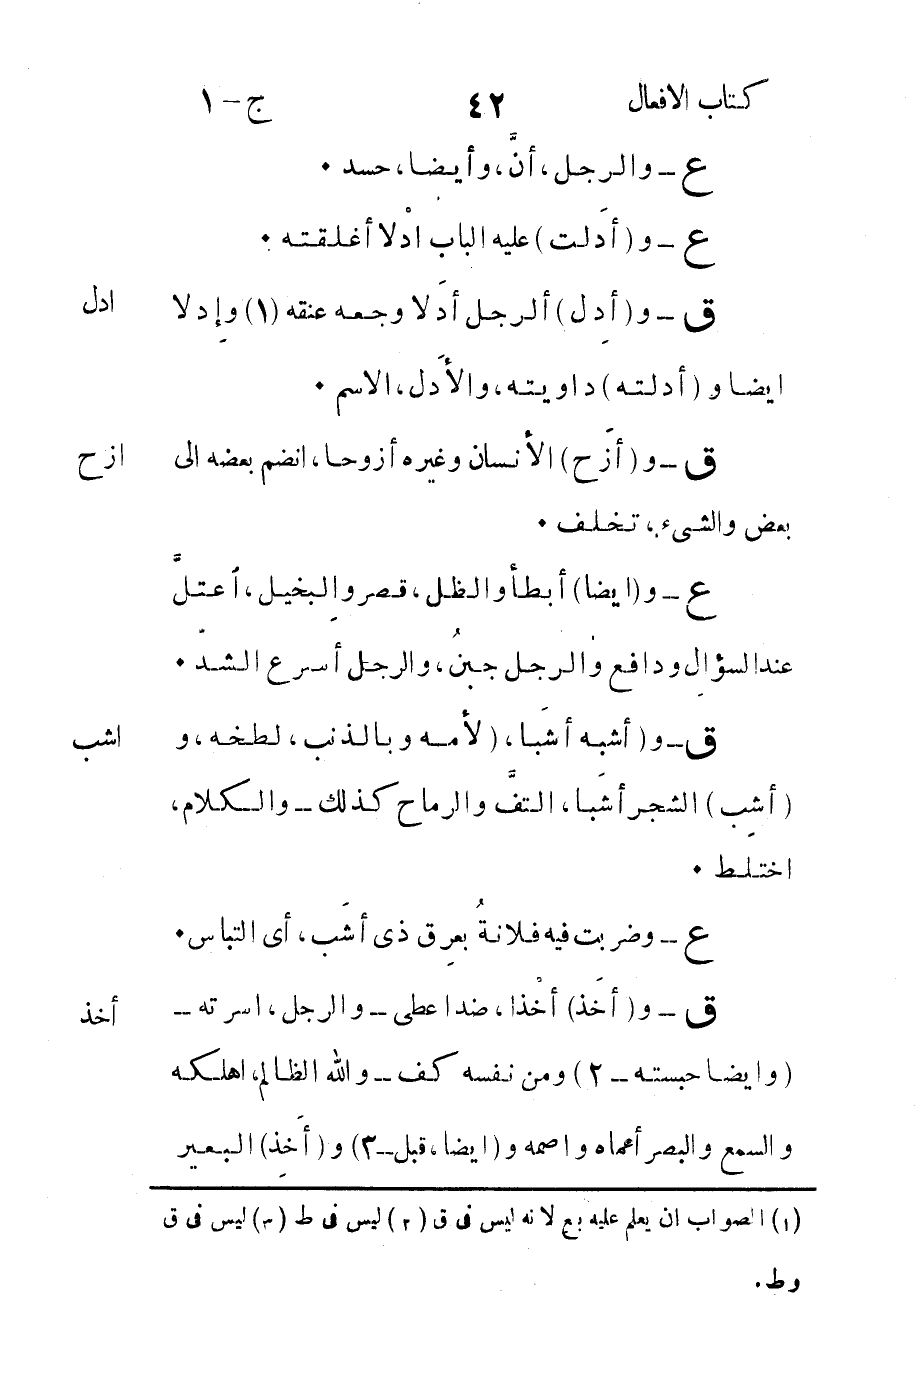 كتاب الافعال ٤٢ ج - ١
ع - والرجل، أنَّ، وأيضا، حسد •
ع - و (أدَلت) عليه الباب ادْلا أغلقته •
ق - و (أدِل) ألرجل أدَلا وجعه عنقه (١) وإدِلا ادل
ايضا و (أدلته) داويته، والأدَل، الاسم •
ق - و (أزَح) الأنسان وغيره أزوحا، انضم بعضه الى ازح
بعض والشىء، تخلف •
ع - و (ايضا) أبطأ والظل، قصر والبخيل، أعتلَّ
عند السؤال ودافع والرجل جبنُ، والرجل أسرع الشدّ •
ق - و (أشبِه أشَبا، (لأمه وبالذنب، لطخه، و اشب
(أشِب) الشجر أشَبا، التفَّ والرماح كذلك - والكلام،
اختلط •
ع - وضربت فيه فلانةُ بعرِق ذى أشَب، أى التباس •
ق - و (أخَذ) أخْذا، ضد اعطى - والرجل، اسرته - أخذ
(وايضا حبسته - ٢) ومن نفسه كف - والله الظالم، اهلكه
والسمع والبصر أعماه واصمه و (ايضا، قبل - ٣) و (أخِذ) البعير
(١) الصواب ان يعلم عليه بع لانه ليس فى ق (٢) ليس فى ط (٣) ليس فى ق
وط.